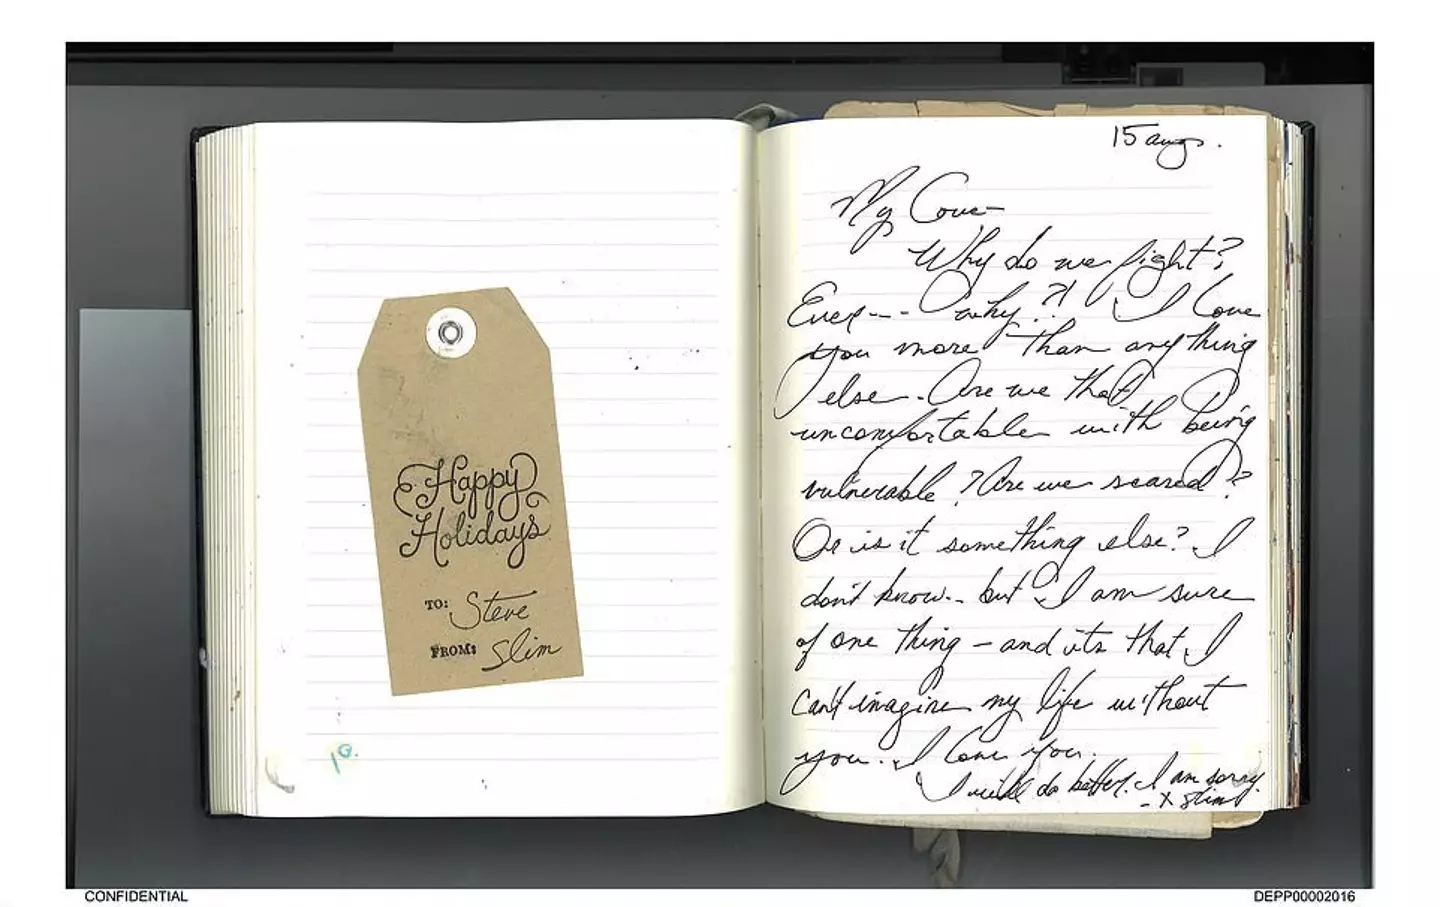 Happy
Holidays
TO: Steve
FROM: Slim
10.
15 aug.
My Love—
Why do we fight?
Ever-- why?! I love
you more than anything
else. Are we that
uncomfortable with being
vulnerable? Are we scared?
Or is it something else? I
don't know.. but I am sure
of one thing – and its that I
can't imagine my life without
you. I love you.
I will do better. I am sorry.
- X Slim
CONFIDENTIAL
DEPP00002016